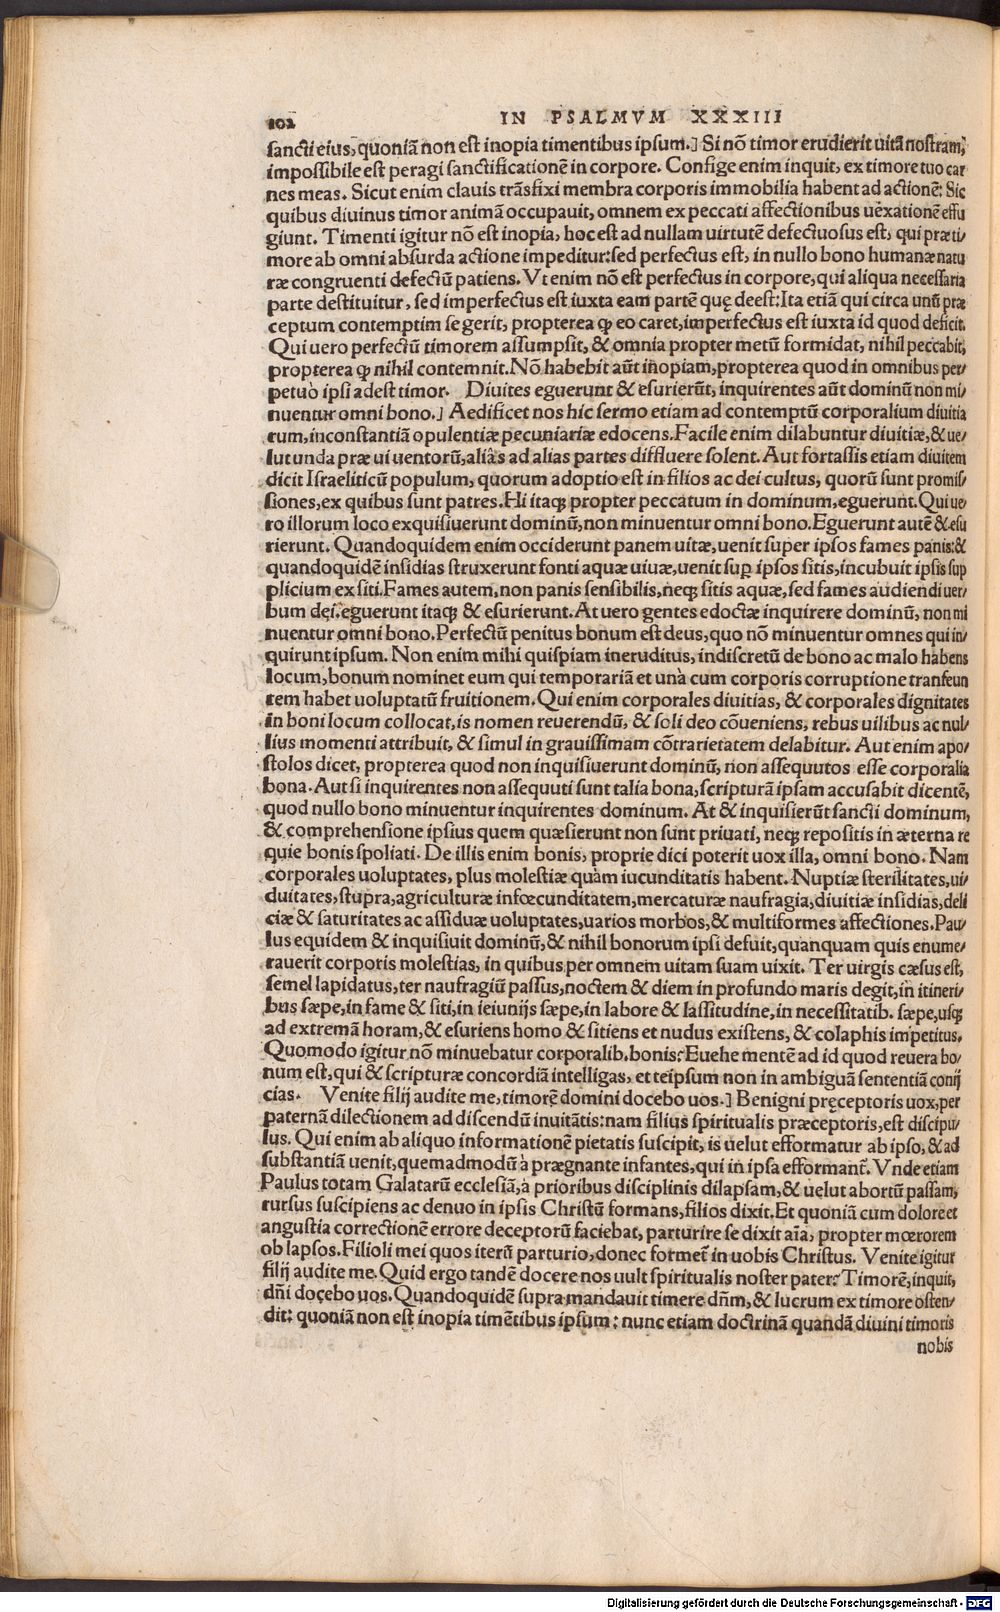 102 IN PSALMVM XXXIII
sancti eius, quoniã non est inopia timentibus ipsum.] Si nõ timor erudierit uitã nostram,
impossibile est peragi sanctificationẽ in corpore. Confige enim inquit, ex timore tuo car
nes meas. Sicut enim clauis trãsfixi membra corporis immobilia habent ad actionẽ: Sic
quibus diuinus timor animã occupauit, omnem ex peccati affectionibus uexationẽ effu
giunt. Timenti igitur nõ est inopia, hoc est ad nullam uirtutẽ defectuosus est, qui præ ti/
more ab omni absurda actione impeditur: sed perfectus est, in nullo bono humanæ natu
ræ congruenti defectũ patiens. Vt enim nõ est perfectus in corpore, qui aliqua necessaria
parte destituitur, sed imperfectus est iuxta eam partẽ quę deest: Ita etiã qui circa unũ præ
ceptum contemptim se gerit, propterea ꝙ eo caret, imperfectus est iuxta id quod deficit.
Qui uero perfectũ timorem assumpsit, & omnia propter metũ formidat, nihil peccabit,
propterea ꝙ nihil contemnit. Nõ habebit aũt inopiam, propterea quod in omnibus per/
petuò ipsi adest timor. Diuites eguerunt & esurierũt, inquirentes aũt dominũ non mi/
nuentur omni bono.] Aedificet nos hic sermo etiam ad contemptũ corporalium diuitia
rum, inconstantiã opulentiæ pecuniariæ edocens. Facile enim dilabuntur diuitiæ, & ue/
lut unda præ ui uentorũ, aliâs ad alias partes diffluere solent. Aut fortassis etiam diuitem
dicit Israeliticũ populum, quorum adoptio est in filios ac dei cultus, quorũ sunt promis/
siones, ex quibus sunt patres. Hi itaqꝫ propter peccatum in dominum, eguerunt. Qui ue/
ro illorum loco exquisiuerunt dominũ, non minuentur omni bono. Eguerunt autẽ & esu
rierunt. Quandoquidem enim occiderunt panem uitæ, uenit super ipsos fames panis: &
quandoquidẽ insidias struxerunt fonti aquæ uiuæ, uenit sup̱ ipsos sitis, incubuit ipsis sup
plicium ex siti. Fames autem, non panis sensibilis, neqꝫ sitis aquæ, sed fames audiendi uer/
bum dei. eguerunt itaqꝫ & esurierunt. At uero gentes edoctæ inquirere dominũ, non mi
nuentur omni bono. Perfectũ penitus bonum est deus, quo nõ minuentur omnes qui in/
quirunt ipsum. Non enim mihi quispiam ineruditus, indiscretũ de bono ac malo habens
locum, bonum nominet eum qui temporariã et unà cum corporis corruptione transeun
tem habet uoluptatũ fruitionem. Qui enim corporales diuitias, & corporales dignitates
in boni locum collocat, is nomen reuerendũ, & soli deo cõueniens, rebus uilibus ac nul/
lius momenti attribuit, & simul in grauissimam cõtrarietatem delabitur. Aut enim apo/
stolos dicet, propterea quod non inquisiuerunt dominũ, non assequutos esse corporalia
bona. Aut si inquirentes non assequuti sunt talia bona, scripturã ipsam accusabit dicentẽ,
quod nullo bono minuentur inquirentes dominum. At & inquisierũt sancti dominum,
& comprehensione ipsius quem quæsierunt non sunt priuati, neqꝫ repositis in æterna re
quie bonis spoliati. De illis enim bonis, proprie dici poterit uox illa, omni bono. Nam
corporales uoluptates, plus molestiæ quàm iucunditatis habent. Nuptiæ sterilitates, ui/
duitates, stupra, agriculturæ infœcunditatem, mercaturæ naufragia, diuitiæ insidias, deli
ciæ & saturitates ac assiduæ uoluptates, uarios morbos, & multiformes affectiones. Pau/
lus equidem & inquisiuit dominũ, & nihil bonorum ipsi defuit, quanquam quis enume/
rauerit corporis molestias, in quibus per omnem uitam suam uixit. Ter uirgis cæsus est,
semel lapidatus, ter naufragiũ passus, noctem & diem in profundo maris degit, in itineri/
bus sæpe, in fame & siti, in ieiunijs sæpe, in labore & lassitudine, in necessitatib. sæpe, usqꝫ
ad extremã horam, & esuriens homo & sitiens et nudus existens, & colaphis impetitus.
Quomodo igitur nõ minuebatur corporalib. bonis? Euehe mentẽ ad id quod reuera bo/
num est, qui & scripturæ concordiã intelligas, et teipsum non in ambiguã sententiã conij
cias. Venite filij audite me, timorẽ domini docebo uos.] Benigni pręceptoris uox, per
paternã dilectionem ad discendũ inuitãtis: nam filius spiritualis præceptoris, est discipu/
lus. Qui enim ab aliquo informationẽ pietatis suscipit, is uelut efformatur ab ipso, & ad
substantiã uenit, quemadmodũ à prægnante infantes, qui in ipsa efformant̃. Vnde etiam
Paulus totam Galatarũ ecclesiã, à prioribus disciplinis dilapsam, & uelut abortũ passam,
rursus suscipiens ac denuo in ipsis Christũ formans, filios dixit. Et quoniã cum dolore et
angustia correctionẽ errore deceptorũ faciebat, parturire se dixit aĩa, propter mœrorem
ob lapsos. Filioli mei quos iterũ parturio, donec format̃ in uobis Christus. Venite igitur
filij audite me. Quid ergo tandẽ docere nos uult spiritualis noster pater? Timorẽ, inquit,
dñi docebo uos. Quandoquidẽ supra mandauit timere dñm, & lucrum ex timore osten/
dit: quoniã non est inopia timẽtibus ipsum: nunc etiam doctrinã quandã diuini timoris
nobis
Digitalisierung gefördert durch die Deutsche Forschungsgemeinschaft - DFG